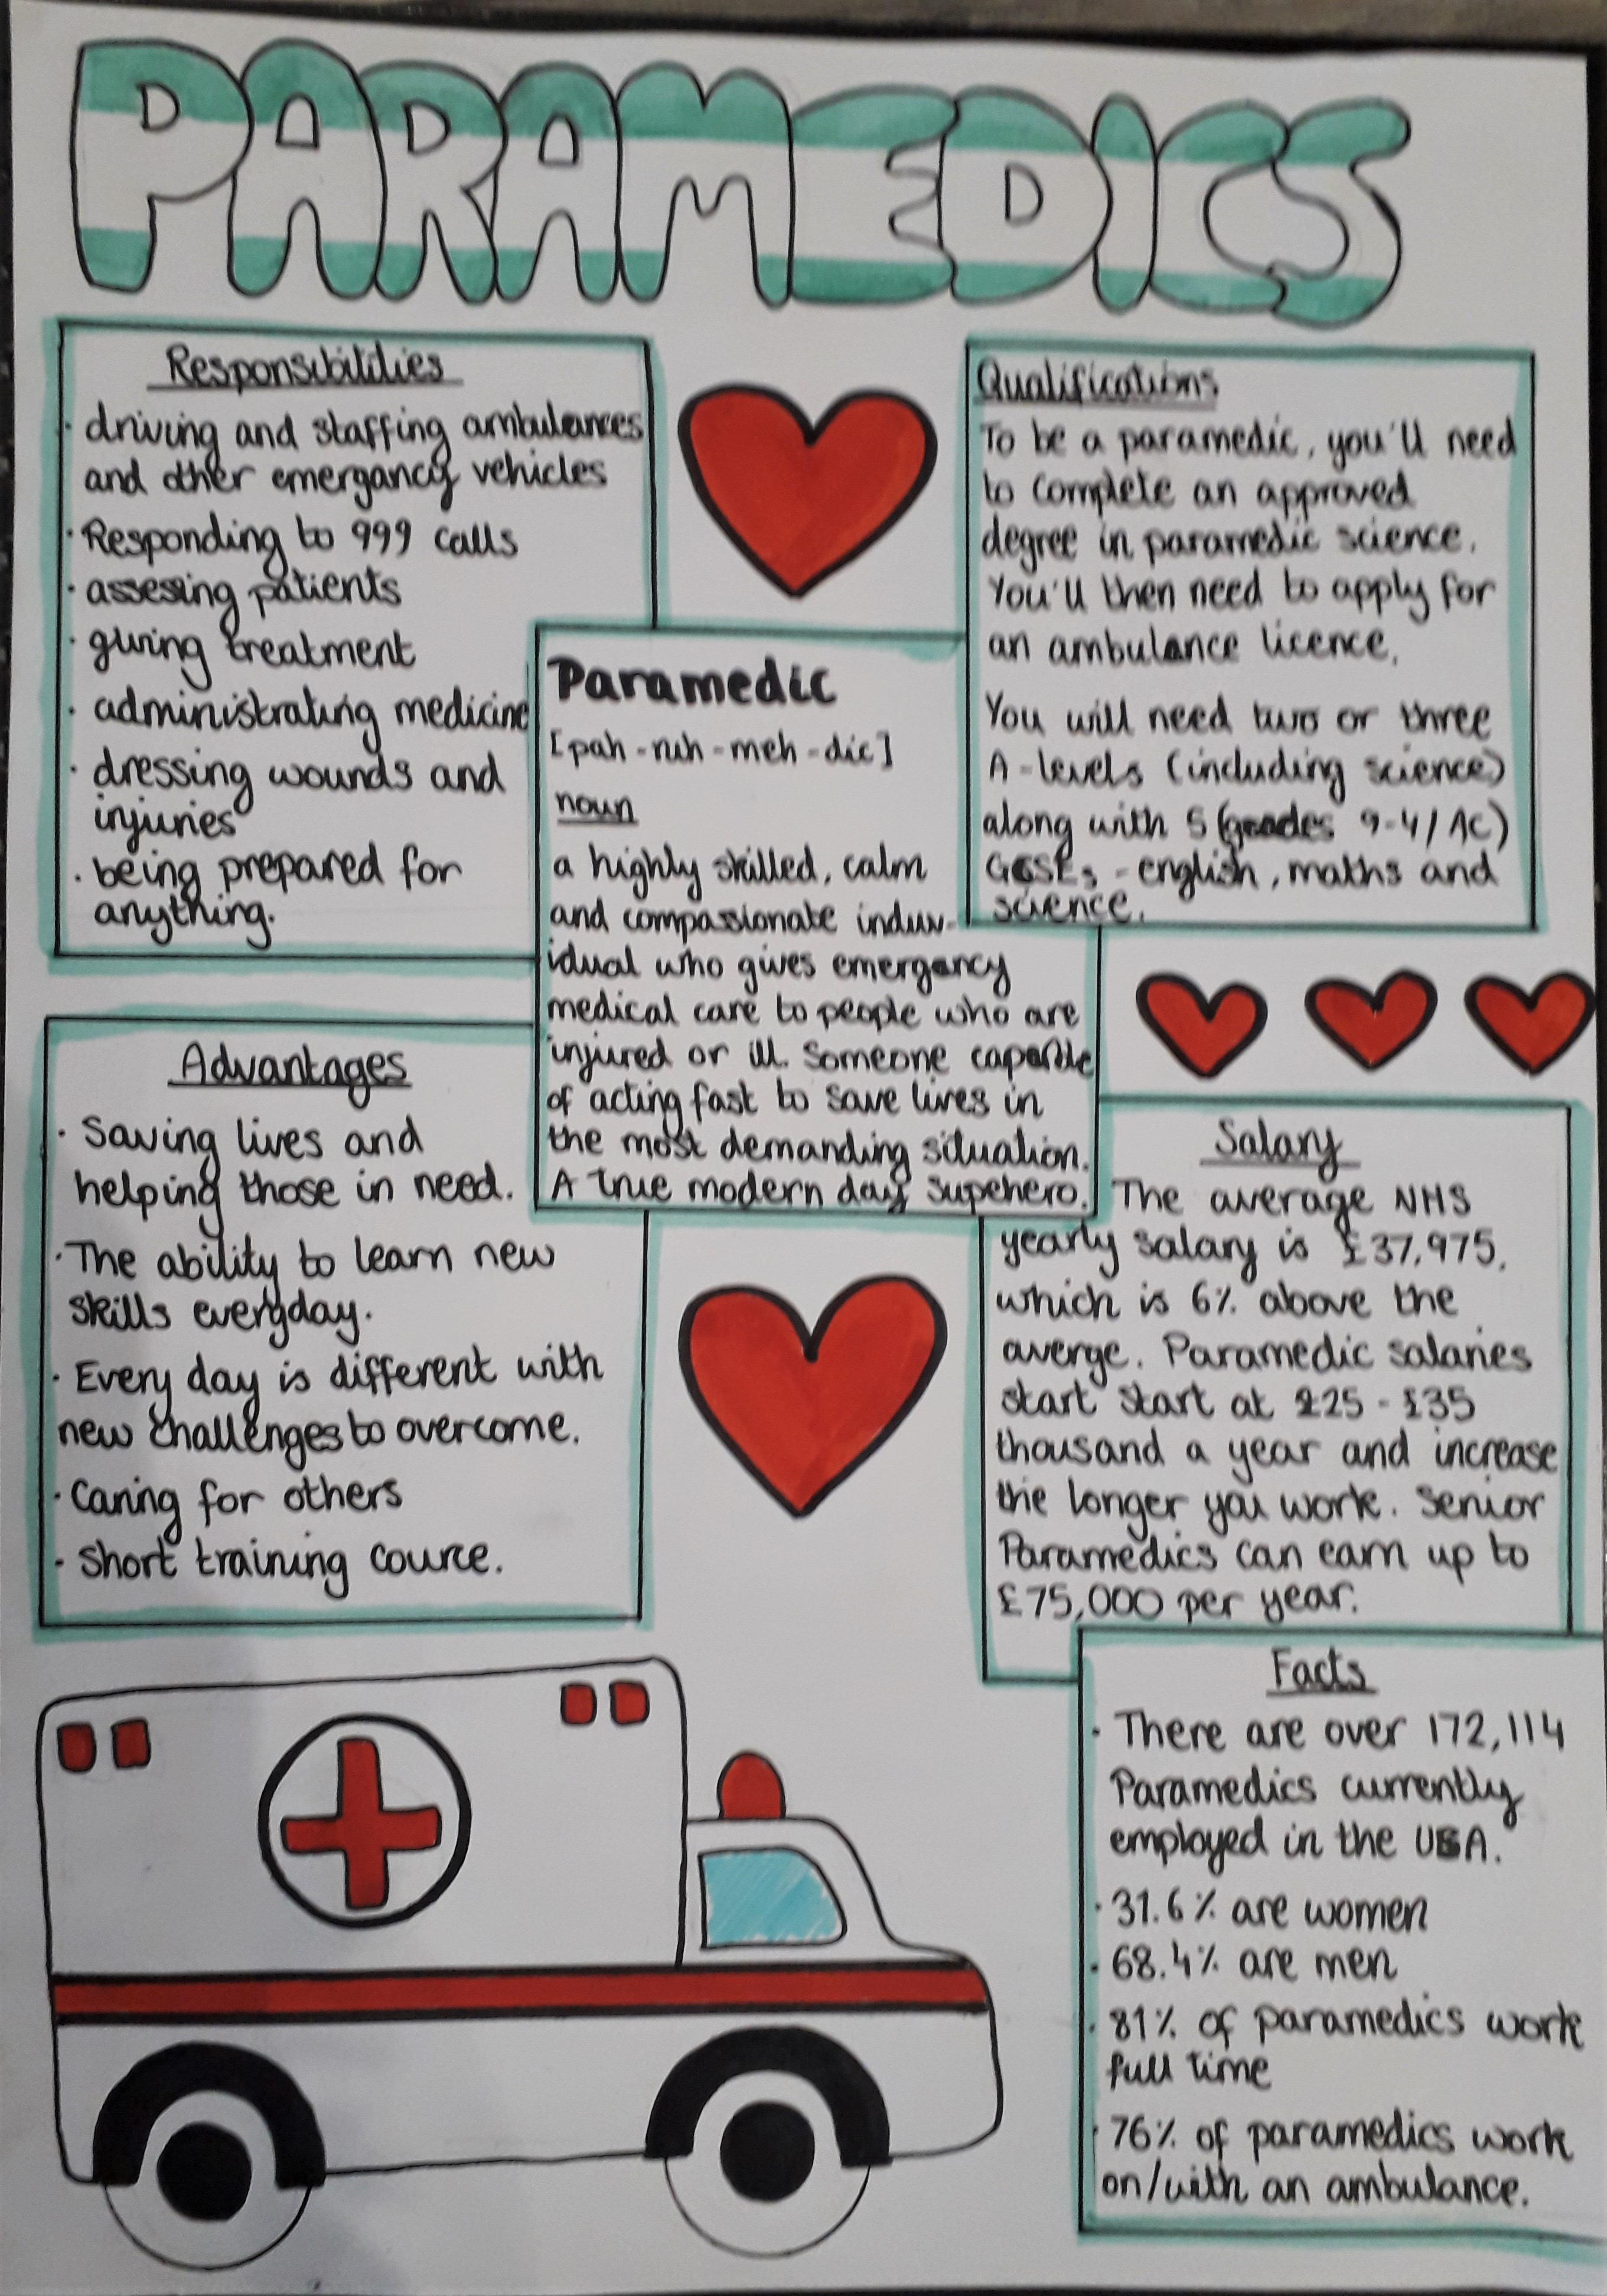 PARAMEDICS
Responsibilities
· driving and staffing ambulances
and other emergancy vehicles
· Responding to 999 calls
· assesing patients
· giving treatment
· administrating medicine
· dressing wounds and
injuries
· being prepared for
anything.
Qualifications
To be a paramedic, you'll need
to complete an approved
degree in paramedic science.
You'll then need to apply for
an ambulance licence.
You will need two or three
A-levels (including science)
along with 5 (grades 9-4/AC)
GCSEs - english, maths and
science.
Paramedic
[pah-ruh-meh-dic]
noun
a highly skilled, calm
and compassionate induv-
idual who gives emergancy
medical care to people who are
injured or ill. Someone capable
of acting fast to save lives in
the most demanding situation.
A true modern day supehero.
Advantages
· Saving lives and
helping those in need.
· The ability to learn new
skills everyday.
· Every day is different with
new challenges to overcome.
· Caring for others
· Short training cource.
Salary
The average NHS
yearly salary is £37,975,
which is 6% above the
averge. Paramedic salaries
start start at £25 - £35
thousand a year and increase
the longer you work. Senior
Paramedics can earn up to
£75,000 per year.
Facts
· There are over 172,114
Paramedics currently
employed in the USA.
· 31.6% are women
· 68.4% are men
· 81% of paramedics work
full time
· 76% of paramedics work
on/with an ambulance.